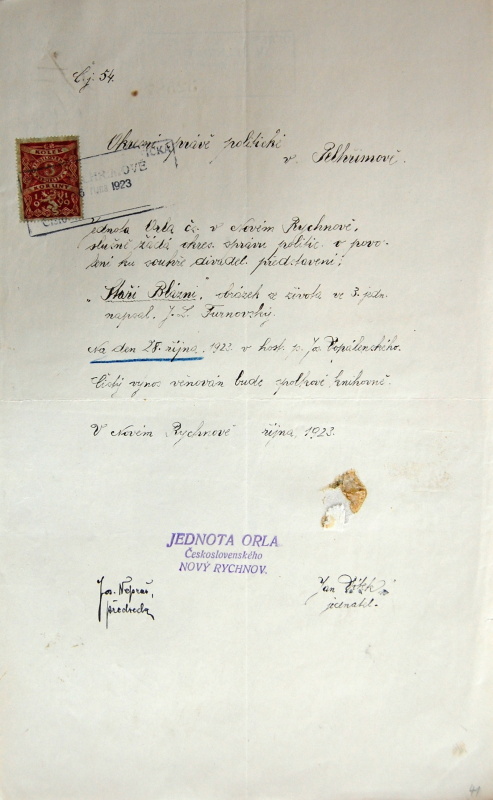 Č.j. 54.
Okresní správě politické
v Pelhřimově.
KOLEK
KORUNY
1923
Jednota Orla čs. v Novém Rychnově,
slušně žádá okres. správu politic. o povo-
lení ku sehrání divadel. představení;
"Staří Blázni", obrázek ze života ve 3. jedn.
napsal, J. L. Turnovský.
Na den 28. října, 1923 v host. p. Jos.
Čistý výnos věnován bude spolkové knihovně.
V Novém Rychnově října, 1923.
JEDNOTA ORLA
Československého
NOVÝ RYCHNOV.
Jos. Nepraš,
předseda
Jan
jednatel.
41